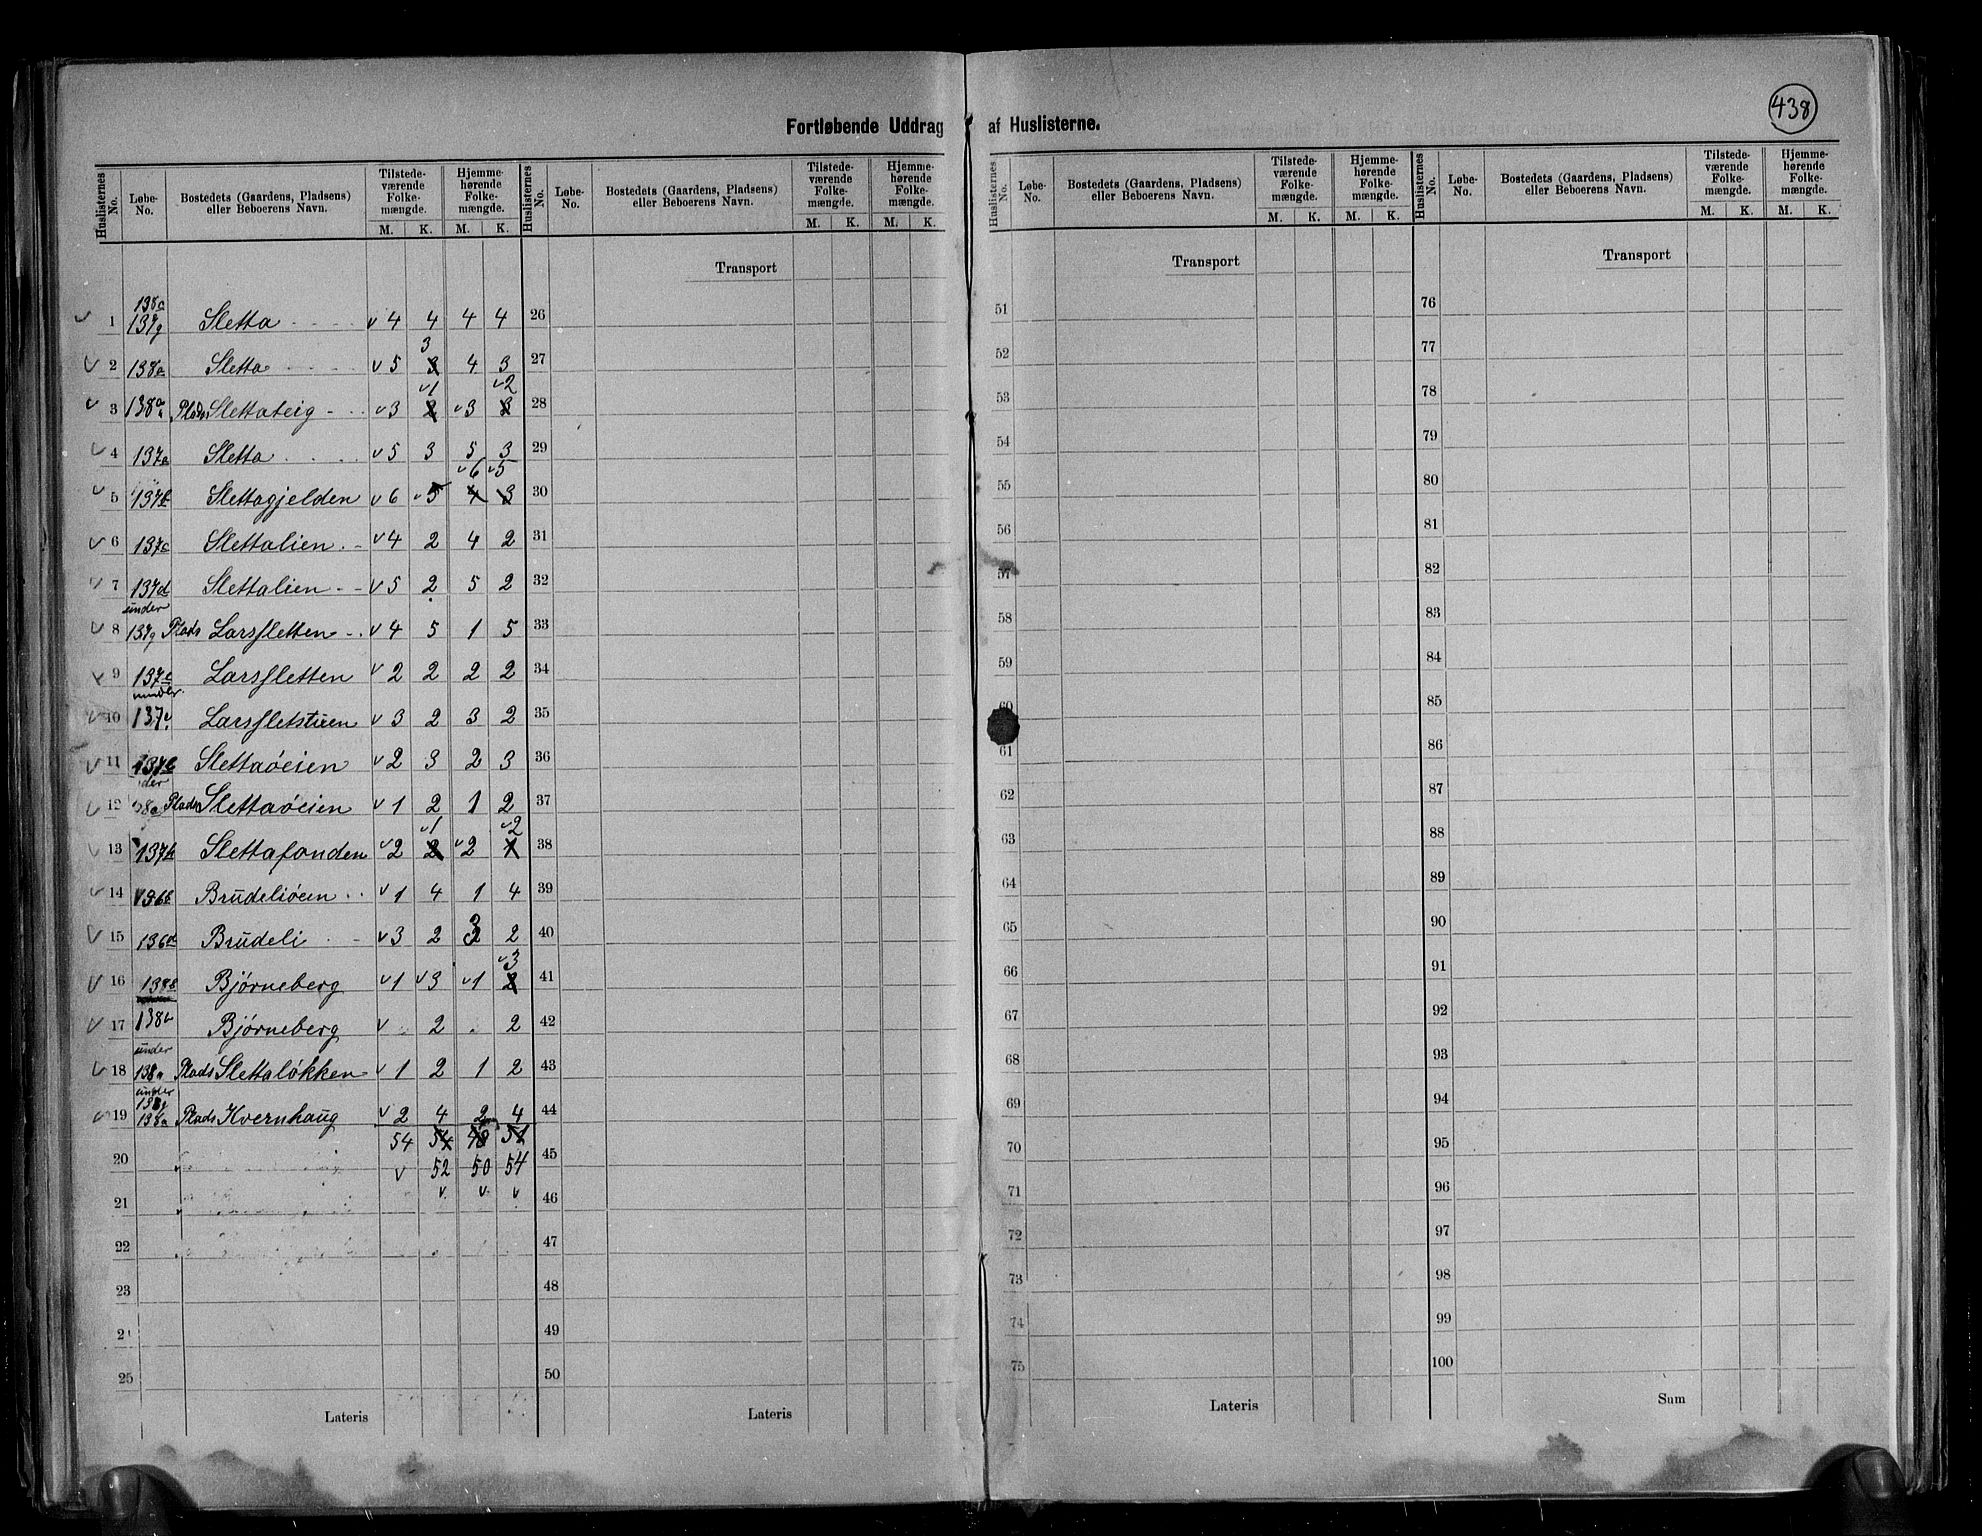 438
Fortløbende Uddrag af Huslisterne.
Huslisternes No. Løbe-No. Bostedets (Gaardens, Pladsens) eller Beboerens Navn. Tilstedeværende Folkemængde. M. K. Hjemmehørende Folkemængde. M. K.
Huslisternes No. Løbe-No. Bostedets (Gaardens, Pladsens) eller Beboerens Navn. Tilstedeværende Folkemængde. M. K. Hjemmehørende Folkemængde. M. K.
Huslisternes No. Løbe-No. Bostedets (Gaardens, Pladsens) eller Beboerens Navn. Tilstedeværende Folkemængde. M. K. Hjemmehørende Folkemængde. M. K.
Huslisternes No. Løbe-No. Bostedets (Gaardens, Pladsens) eller Beboerens Navn. Tilstedeværende Folkemængde. M. K. Hjemmehørende Folkemængde. M. K.
Transport Transport Transport
1 137g Sletta 4 4 4 4
2 138a Sletta 5 3 4 3
3 138a Plads Slettateig 3 1 3 2
4 137a Sletta 5 3 5 3
5 137b Slettagjelden 6 5 6 5
6 137c Slettalien 4 2 4 2
7 137d Slettalien 5 2 5 2
under
8 137g Plads Larssletten 4 5 1 5
9 137c Larssletten 2 2 2 2
under
10 137 Larssletstuen 3 2 3 2
11 137 Slettaøeien 2 3 2 3
12 Plads Slettaøeien 1 2 1 2
13 137h Slettafonden 2 1 2 2
14 136b Brudeliøein 1 4 1 4
15 136d Brudeli 3 2 3 2
16 138b Bjørneberg 1 3 1 3
17 138b Bjørneberg 2 2
under
18 138a Plads Slettaløkken 1 2 1 2
under
19 138a Plads Kvernhaug 2 4 2 4
54 54 48 51
20 52 50 54
21
22
23
25
Lateris
26
27
28
29
30
31
32
33
34
35
36
37
38
39
40
41
42
43
44
45
46
47
48
49
50
Lateris
51
52
53
54
55
56
57
58
59
60
61
62
63
64
65
66
67
68
69
70
71
72
73
74
75
Lateris
76
77
78
79
80
81
82
83
84
85
86
87
88
89
90
91
92
93
94
95
96
97
98
99
100
Sum